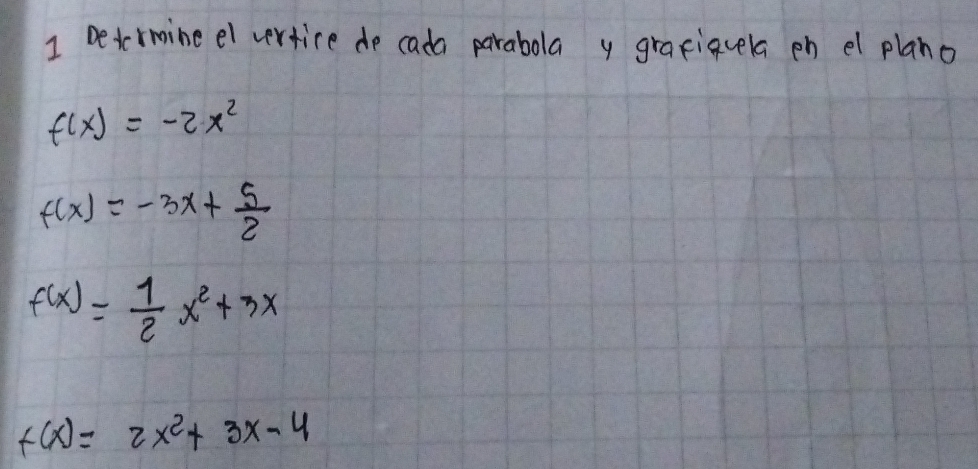 1 Determine el vertice de cada parabola y grafiquela en el plano
f(x) = -2x²
f(x) = -3x + 5/2
f(x) = 1/2 x² + 3x
f(x) = 2x² + 3x - 4